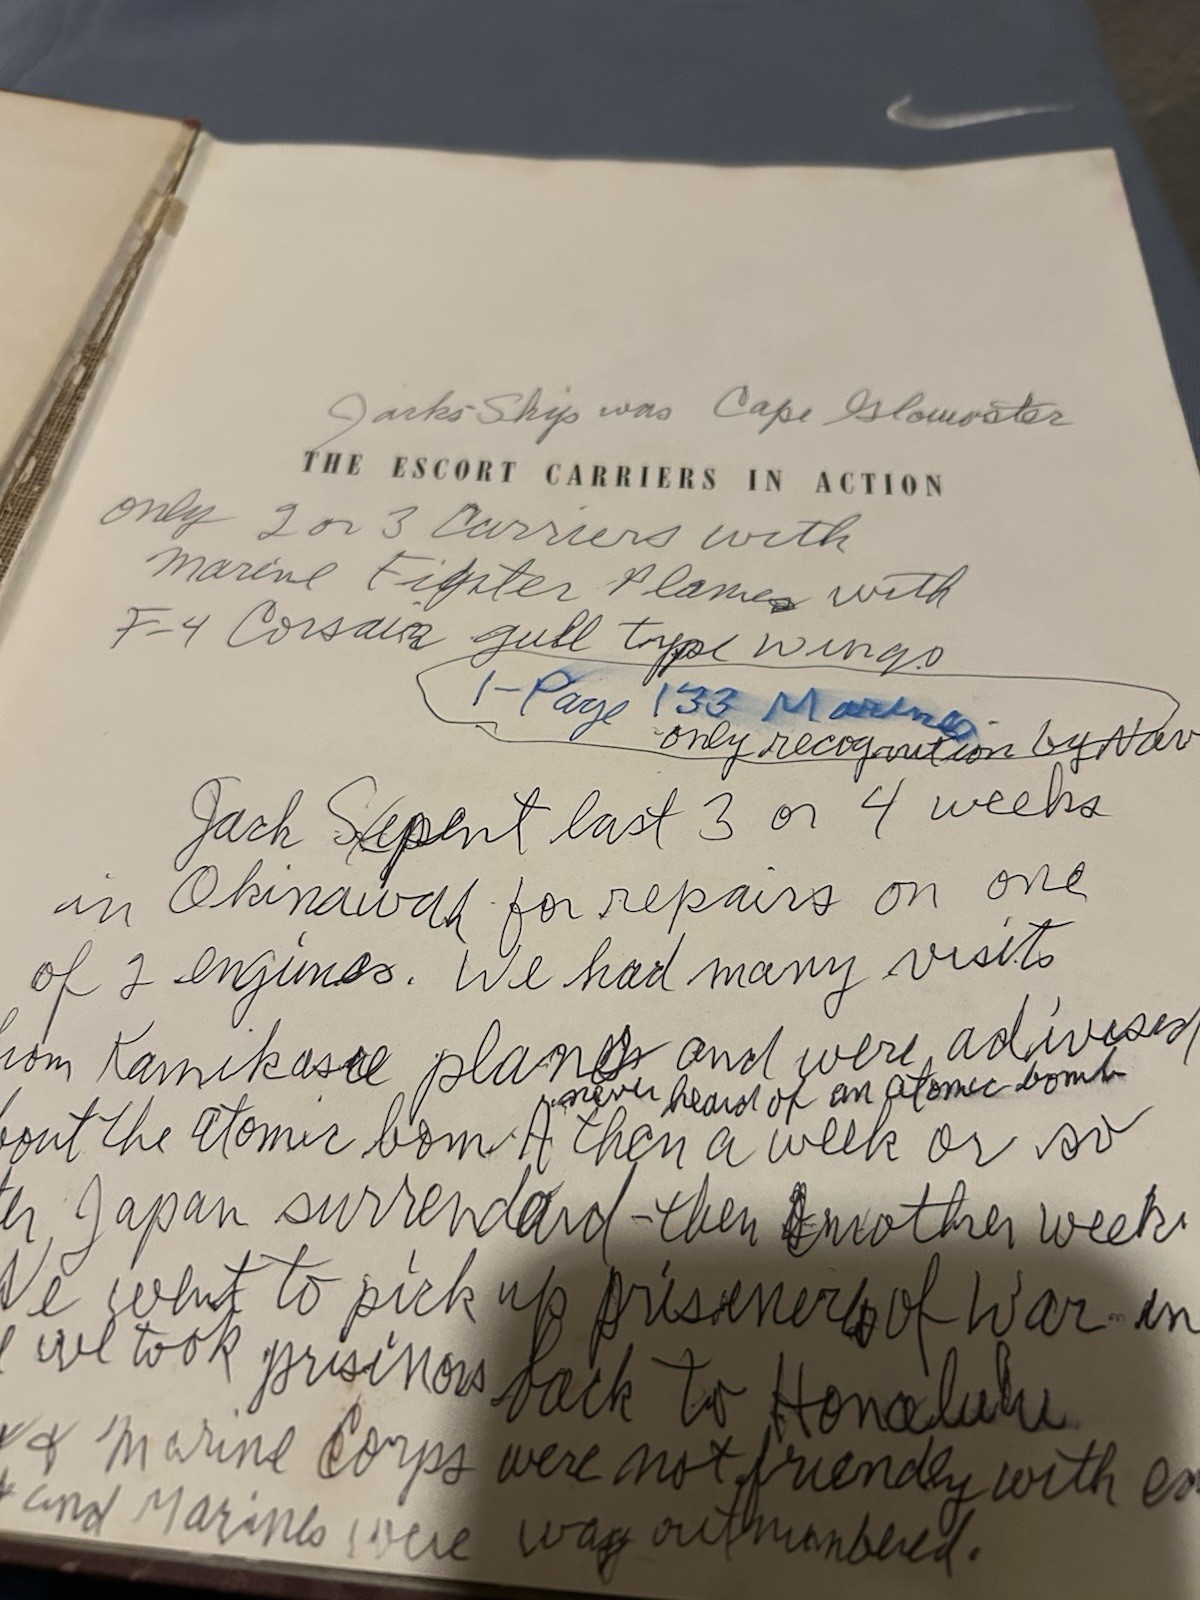 Jacks Ship was Cape Glowoster
THE ESCORT CARRIERS IN ACTION
only 2 or 3 Carriers with
Marine Fighter Planes with
F-4 Corsair gull type wings
1-Page 133 Marines
only recognition by Nav
Jack Spent last 3 or 4 weeks
in Okinawah for repairs on one
of 2 engines. We had many visits
rom Kamikasie planes and were adivised
never heard of an atomic bomb
bout the atomic bom. A then a week or so
ter Japan surrendard - then another week
We went to pick up prisiners of War - in
we took prisinors back to Honolulu
& Marine Corps were not friendly with
and Marines were way outnumbered.